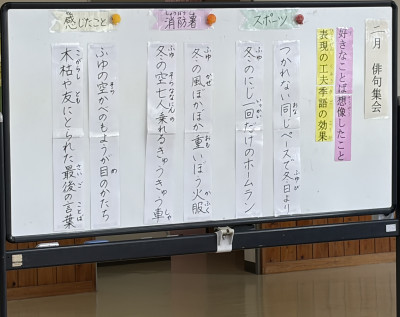 二月 俳句集会
好きなことば想像したこと
表現の工夫季語の効果
スポーツ
つかれない同じペースで冬日より
冬のにじ一回だけのホームラン
消防署
冬の風ぽかぽか重いぼう火服
冬の空七人乗れるきゅうきゅう車
感じたこと
ふゆの空かべのもようが目のかたち
木枯や友にとられた最後の言葉